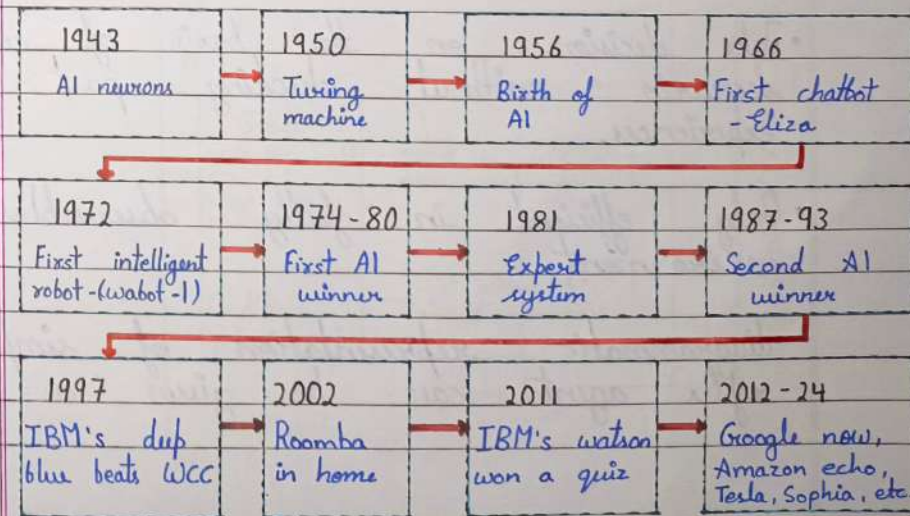 1943
AI neurons
1950
Turing
machine
1956
Birth of
AI
1966
First chatbot
- Eliza
1972
First intelligent
robot-(wabot-1)
1974-80
First AI
winner
1981
Expert
system
1987-93
Second AI
winner
1997
IBM's deep
blue beats WCC
2002
Roomba
in home
2011
IBM's watson
won a quiz
2012-24
Google now,
Amazon echo,
Tesla, Sophia, etc